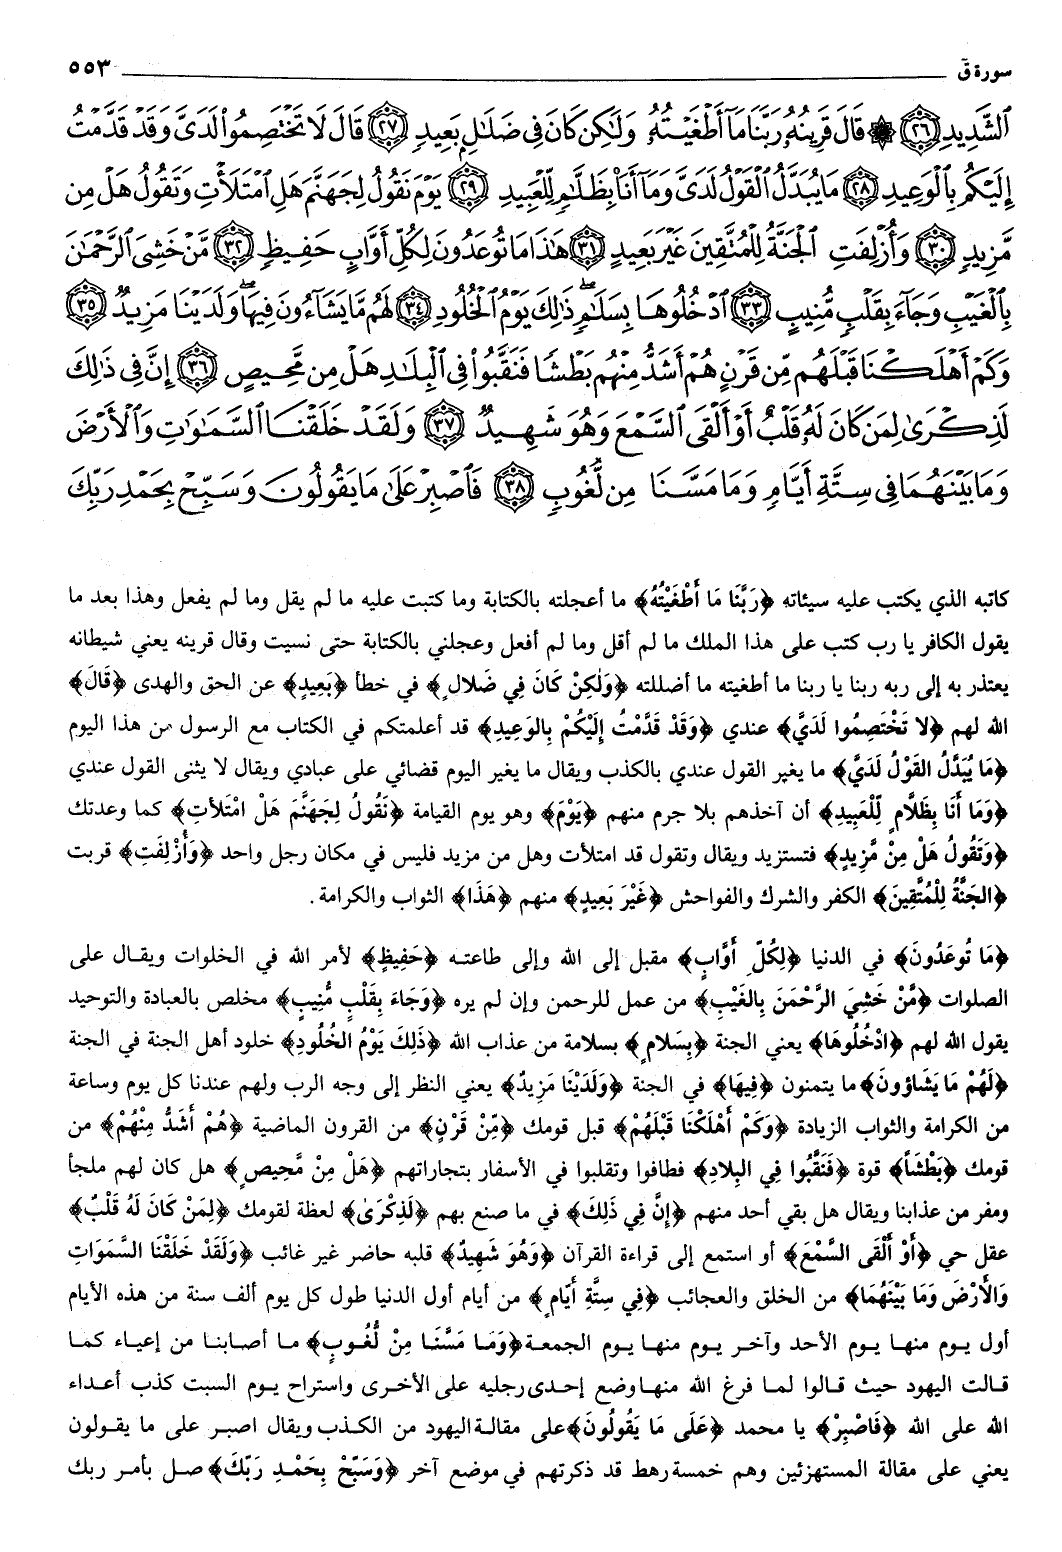 سورة قۤ ٥٥٣
ٱلشَّدِيدِ ﴿٢٦﴾ ۞ قَالَ قَرِينُهُۥ رَبَّنَا مَآ أَطْغَيْتُهُۥ وَلَٰكِن كَانَ فِى ضَلَٰلِۭ بَعِيدٍ ﴿٢٧﴾ قَالَ لَا تَخْتَصِمُوا۟ لَدَىَّ وَقَدْ قَدَّمْتُ
إِلَيْكُم بِٱلْوَعِيدِ ﴿٢٨﴾ مَا يُبَدَّلُ ٱلْقَوْلُ لَدَىَّ وَمَآ أَنَا۠ بِظَلَّٰمٍ لِّلْعَبِيدِ ﴿٢٩﴾ يَوْمَ نَقُولُ لِجَهَنَّمَ هَلِ ٱمْتَلَأْتِ وَتَقُولُ هَلْ مِن
مَّزِيدٍ ﴿٣٠﴾ وَأُزْلِفَتِ ٱلْجَنَّةُ لِلْمُتَّقِينَ غَيْرَ بَعِيدٍ ﴿٣١﴾ هَٰذَا مَا تُوعَدُونَ لِكُلِّ أَوَّابٍ حَفِيظٍ ﴿٣٢﴾ مَّنْ خَشِىَ ٱلرَّحْمَٰنَ
بِٱلْغَيْبِ وَجَآءَ بِقَلْبٍ مُّنِيبٍ ﴿٣٣﴾ ٱدْخُلُوهَا بِسَلَٰمٍ ۖ ذَٰلِكَ يَوْمُ ٱلْخُلُودِ ﴿٣٤﴾ لَهُم مَّا يَشَآءُونَ فِيهَا ۖ وَلَدَيْنَا مَزِيدٌ ﴿٣٥﴾
وَكَمْ أَهْلَكْنَا قَبْلَهُم مِّن قَرْنٍ هُمْ أَشَدُّ مِنْهُم بَطْشًا فَنَقَّبُوا۟ فِى ٱلْبِلَٰدِ هَلْ مِن مَّحِيصٍ ﴿٣٦﴾ إِنَّ فِى ذَٰلِكَ
لَذِكْرَىٰ لِمَن كَانَ لَهُۥ قَلْبٌ أَوْ أَلْقَى ٱلسَّمْعَ وَهُوَ شَهِيدٌ ﴿٣٧﴾ وَلَقَدْ خَلَقْنَا ٱلسَّمَٰوَٰتِ وَٱلْأَرْضَ
وَمَا بَيْنَهُمَا فِى سِتَّةِ أَيَّامٍ وَمَا مَسَّنَا مِن لُّغُوبٍ ﴿٣٨﴾ فَٱصْبِرْ عَلَىٰ مَا يَقُولُونَ وَسَبِّحْ بِحَمْدِ رَبِّكَ
كاتبه الذي يكتب عليه سيئاته ﴿رَبَّنَا مَا أَطْغَيْتُهُ﴾ ما أعجلته بالكتابة وما كتبت عليه ما لم يقل وما لم يفعل وهذا بعد ما
يقول الكافر يا رب كتب على هذا الملك ما لم أقل وما لم أفعل وعجلني بالكتابة حتى نسيت وقال قرينه يعني شيطانه
يعتذر به إلى ربه ربنا يا ربنا ما أطغيته ما أضللته ﴿وَلٰكِنْ كَانَ فِي ضَلالٍ﴾ في خطأ ﴿بَعِيدٍ﴾ عن الحق والهدى ﴿قَالَ﴾
الله لهم ﴿لا تَخْتَصِمُوا لَدَيَّ﴾ عندي ﴿وَقَدْ قَدَّمْتُ إِلَيْكُمْ بِالوَعِيدِ﴾ قد أعلمتكم في الكتاب مع الرسول من هذا اليوم
﴿مَا يُبَدَّلُ القَوْلُ لَدَيَّ﴾ ما يغير القول عندي بالكذب ويقال ما يغير اليوم قضائي على عبادي ويقال لا يثنى القول عندي
﴿وَمَا أَنَا بِظَلَّامٍ لِّلْعَبِيدِ﴾ أن آخذهم بلا جرم منهم ﴿يَوْمَ﴾ وهو يوم القيامة ﴿نَقُولُ لِجَهَنَّمَ هَلْ امْتَلأتِ﴾ كما وعدتك
﴿وَتَقُولُ هَلْ مِنْ مَّزِيدٍ﴾ فتستزيد ويقال وتقول قد امتلأت وهل من مزيد فليس في مكان رجل واحد ﴿وَأُزْلِفَتِ﴾ قربت
﴿الجَنَّةُ لِلْمُتَّقِينَ﴾ الكفر والشرك والفواحش ﴿غَيْرَ بَعِيدٍ﴾ منهم ﴿هَذَا﴾ الثواب والكرامة.
﴿مَا تُوعَدُونَ﴾ في الدنيا ﴿لِكُلِّ أَوَّابٍ﴾ مقبل إلى الله وإلى طاعته ﴿حَفِيظٍ﴾ لأمر الله في الخلوات ويقال على
الصلوات ﴿مَّنْ خَشِيَ الرَّحْمَنَ بِالغَيْبِ﴾ من عمل للرحمن وإن لم يره ﴿وَجَاءَ بِقَلْبٍ مُّنِيبٍ﴾ مخلص بالعبادة والتوحيد
يقول الله لهم ﴿ادْخُلُوهَا﴾ يعني الجنة ﴿بِسَلامٍ﴾ بسلامة من عذاب الله ﴿ذَلِكَ يَوْمُ الخُلُودِ﴾ خلود أهل الجنة في الجنة
﴿لَهُمْ مَا يَشَاؤونَ﴾ ما يتمنون ﴿فِيهَا﴾ في الجنة ﴿وَلَدَيْنَا مَزِيدٌ﴾ يعني النظر إلى وجه الرب ولهم عندنا كل يوم وساعة
من الكرامة والثواب الزيادة ﴿وَكَمْ أَهْلَكْنَا قَبْلَهُمْ﴾ قبل قومك ﴿مِّنْ قَرْنٍ﴾ من القرون الماضية ﴿هُمْ أَشَدُّ مِنْهُمْ﴾ من
قومك ﴿بَطْشَاً﴾ قوة ﴿فَنَقَّبُوا فِي البِلادِ﴾ فطافوا وتقلبوا في الأسفار بتجاراتهم ﴿هَلْ مِنْ مَّحِيصٍ﴾ هل كان لهم ملجأ
ومفر من عذابنا ويقال هل بقي أحد منهم ﴿إِنَّ فِي ذَلِكَ﴾ في ما صنع بهم ﴿لَذِكْرَىٰ﴾ لعظة لقومك ﴿لِمَنْ كَانَ لَهُ قَلْبٌ﴾
عقل حي ﴿أَوْ أَلْقَى السَّمْعَ﴾ أو استمع إلى قراءة القرآن ﴿وَهُوَ شَهِيدٌ﴾ قلبه حاضر غير غائب ﴿وَلَقَدْ خَلَقْنَا السَّمَوَاتِ
وَالأَرْضَ وَمَا بَيْنَهُمَا﴾ من الخلق والعجائب ﴿فِي سِتَّةِ أَيّامٍ﴾ من أيام أول الدنيا طول كل يوم ألف سنة من هذه الأيام
أول يوم منها يوم الأحد وآخر يوم منها يوم الجمعة ﴿وَمَا مَسَّنَا مِنْ لُّغُوبٍ﴾ ما أصابنا من إعياء كما
قالت اليهود حيث قالوا لما فرغ الله منها وضع إحدى رجليه على الأخرى واستراح يوم السبت كذب أعداء
الله على الله ﴿فَاصْبِرْ﴾ يا محمد ﴿عَلَى مَا يَقُولُونَ﴾ على مقالة اليهود من الكذب ويقال اصبر على ما يقولون
يعني على مقالة المستهزئين وهم خمسة رهط قد ذكرتهم في موضع آخر ﴿وَسَبِّحْ بِحَمْدِ رَبِّكَ﴾ صل بأمر ربك